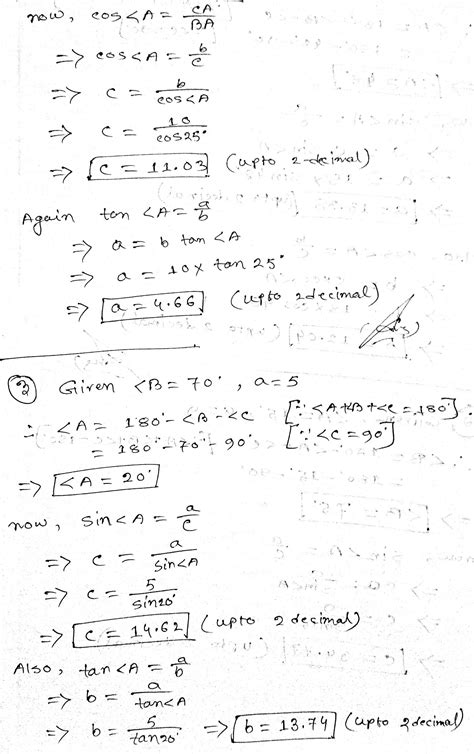 now, cos<A = CA/BA
=> cos<A = b/c
=> c = b/cos<A
=> c = 10/cos25°
=> c = 11.03 (upto 2-decimal)
Again tan <A = a/b
=> a = b tan <A
=> a = 10x tan 25°
=> a = 4.66 (upto 2decimal)
③ Given <B = 70°, a = 5
∴ <A = 180° - <B - <C [∵ <A+<B+<C = 180°]
= 180° - 70° - 90° [∵ <C = 90°]
=> <A = 20°
now, sin<A = a/c
=> c = a/sin<A
=> c = 5/sin20°
=> c = 14.62 (upto 2 decimal)
Also, tan<A = a/b
=> b = a/tan<A
=> b = 5/tan20° => b = 13.74 (upto 2decimal)